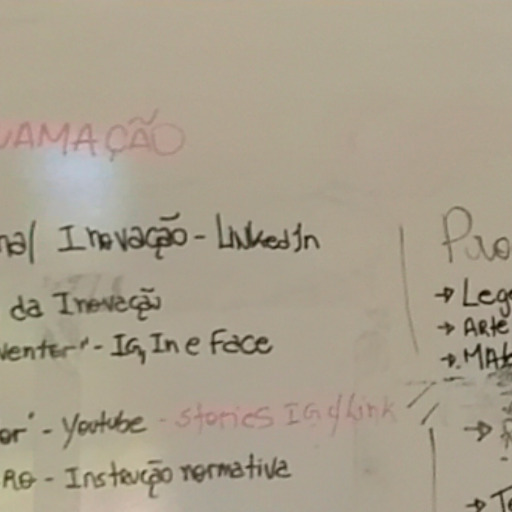 AMAÇÃO
nal Inovação - LinkedIn
da Inovação
venter" - IG, In e Face
or" - Youtube - Stories IG y Link
RO - Instrução normativa
Pro
→ Leg
→ Arte
→ MAt